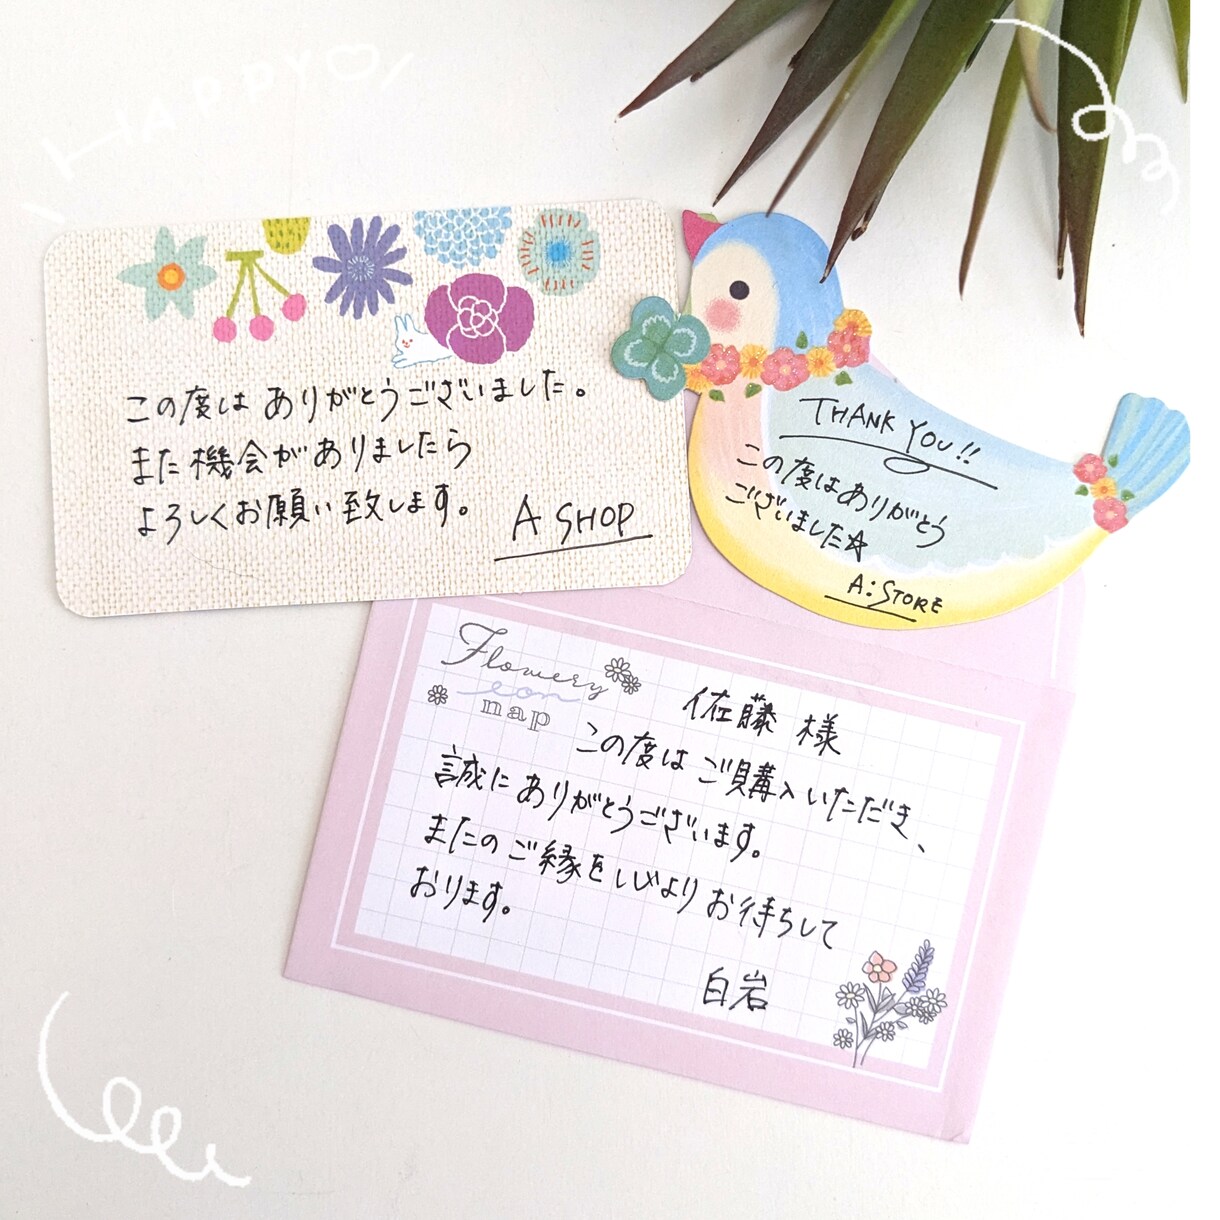 HAPPY♡
この度はありがとうございました。
また機会がありましたら
よろしくお願い致します。
A SHOP
THANK YOU!!
この度はありがとう
ございました☆
A:STORE
Flowery
eon
nap
佐藤 様
この度はご購入いただき、
誠にありがとうございます。
またのご縁を心よりお待ちして
おります。
白岩